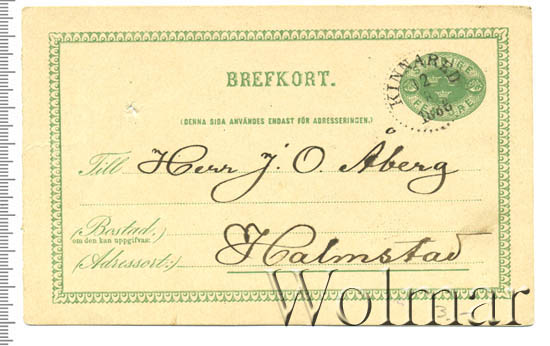 SVERIGE
KINNARED
2
1886
FEM ÖRE
BREFKORT.
(DENNA SIDA ANVÄNDES ENDAST FÖR ADRESSERINGEN.)
Till Herr J. O. Åberg
(Bostad:)
om den kan uppgifvas:
(Adressort:) Halmstad
3.-
Wolmar